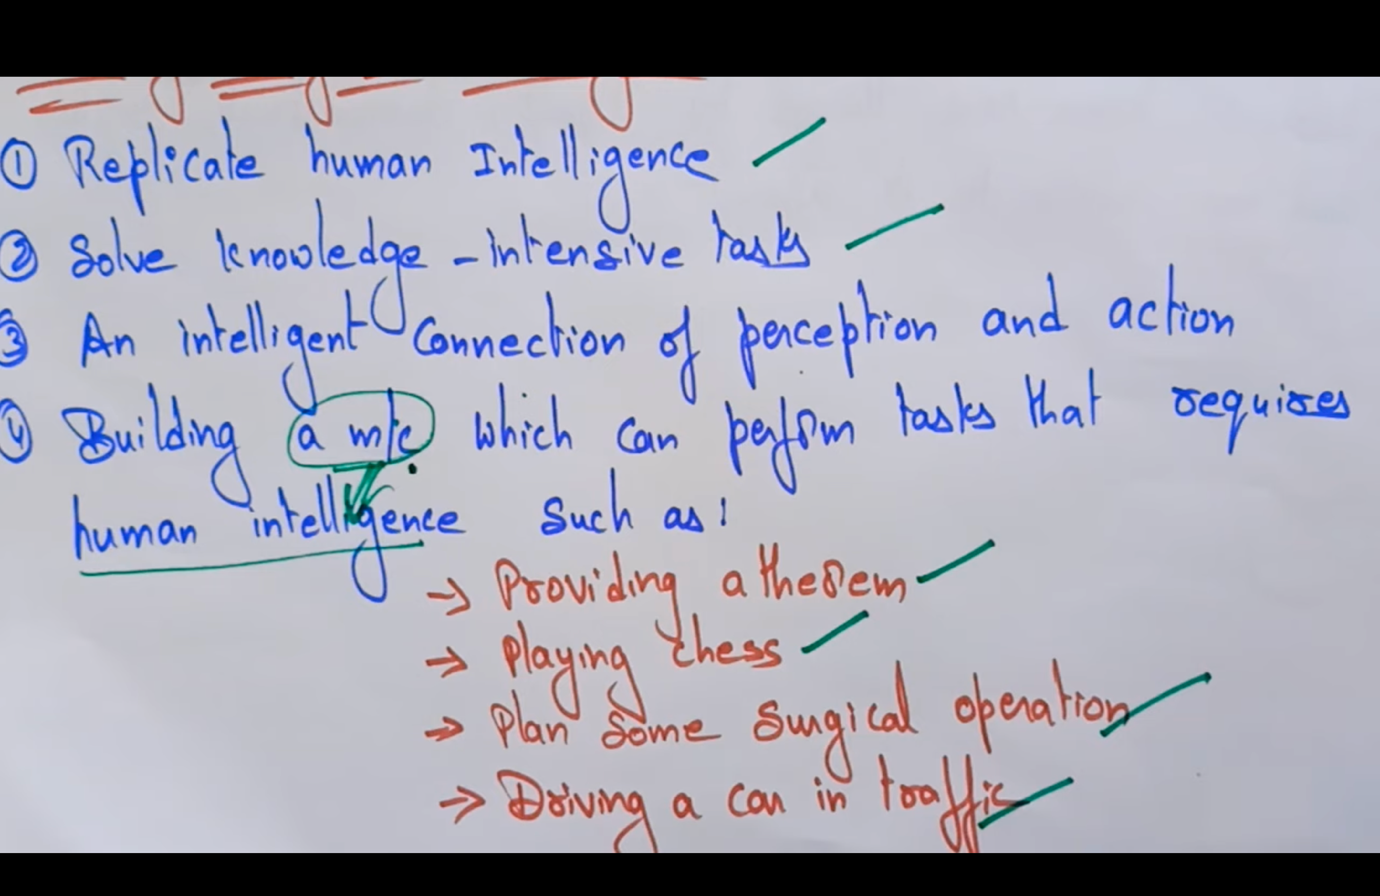 ① Replicate human Intelligence
② Solve knowledge-intensive tasks
③ An intelligent Connection of perception and action
④ Building a m/c which can perform tasks that requires
human intelligence such as:
→ Providing a theorem
→ Playing chess
→ Plan Some Surgical operation
→ Driving a car in traffic